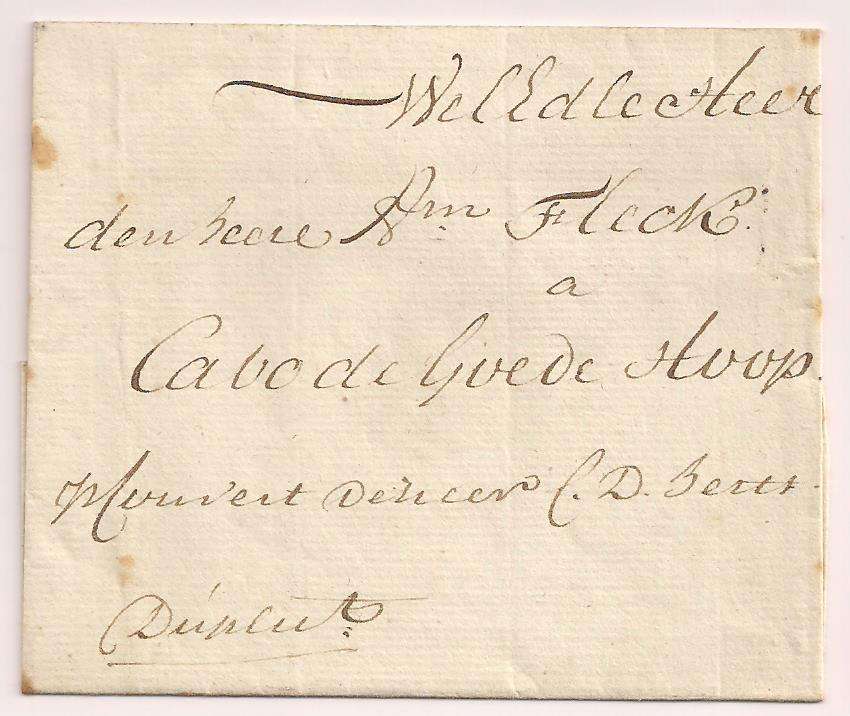 Wel Edle Heer
den heere Am Fleck.
a
Cabo de Goede Hoop.
p Couvert den Heer C. D.
Duplicat